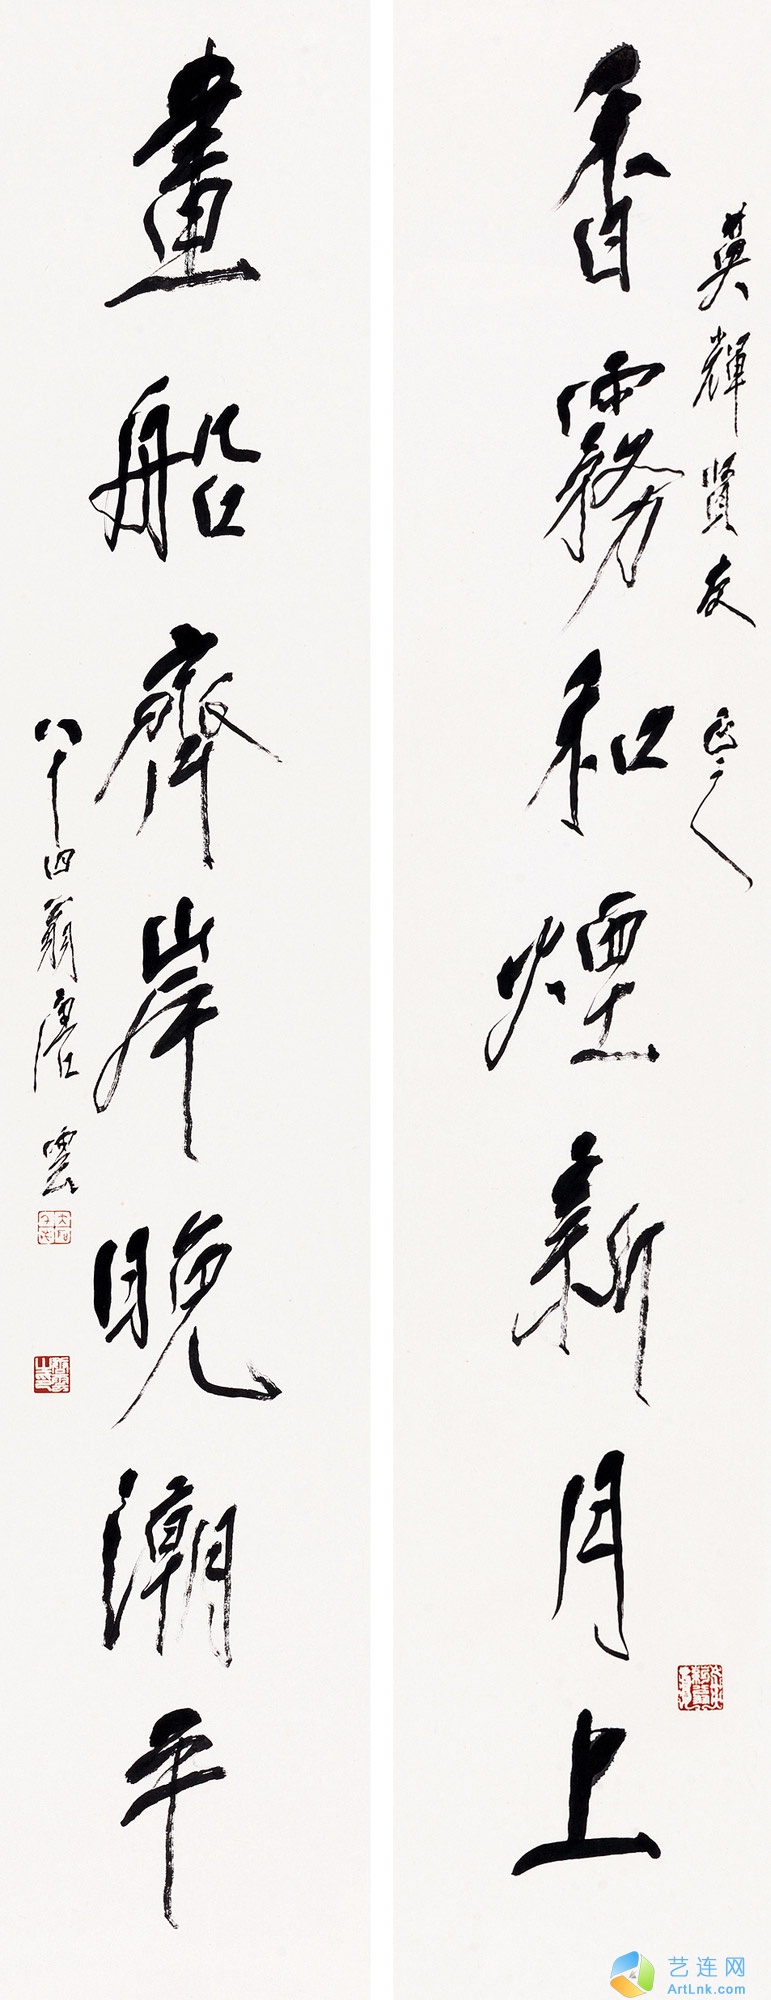 香霧和煙新月上
英輝賢友正之
畫船齊岸晚潮平
八十四翁唐雲
艺连网
ArtLnk.com